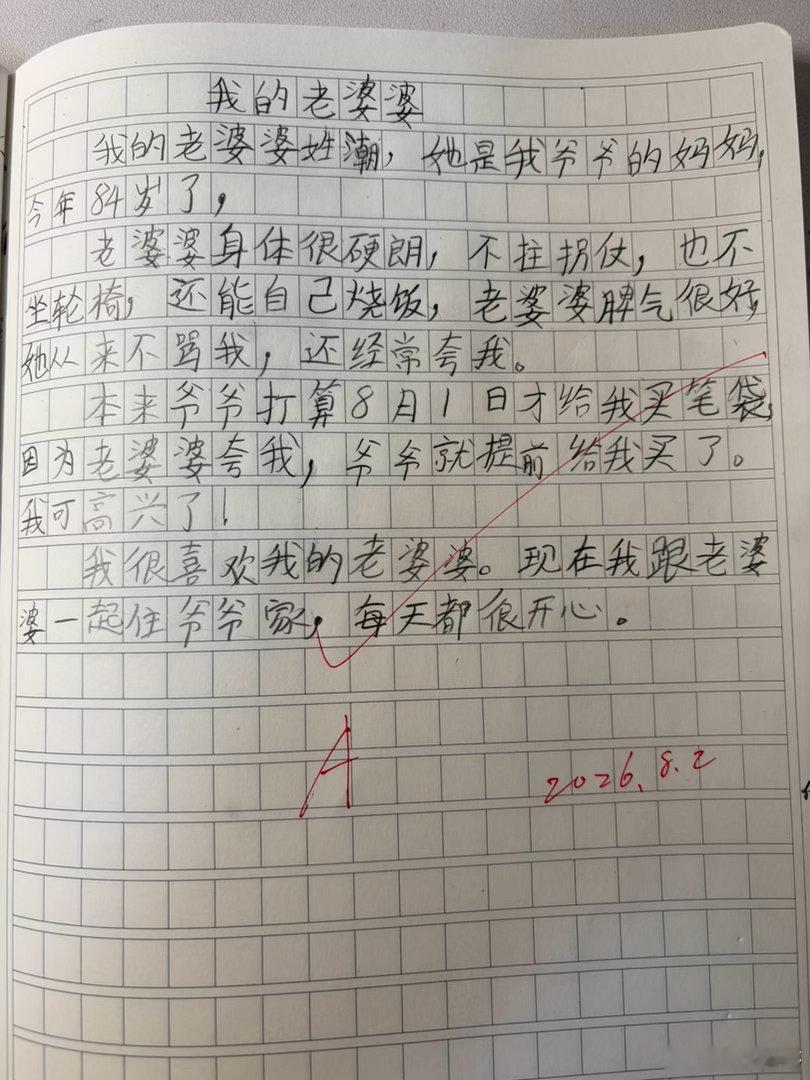 我的老婆婆
我的老婆婆姓潮，她是我爷爷的妈妈，
今年84岁了，
老婆婆身体很硬朗，不拄拐仗，也不
坐轮椅，还能自己烧饭，老婆婆脾气很好，
她从来不骂我，还经常夸我。
本来爷爷打算8月1日才给我买笔袋，
因为老婆婆夸我，爷爷就提前给我买了。
我可高兴了！
我很喜欢我的老婆婆。现在我跟老婆
婆一起住爷爷家，每天都很开心。
A
2026.8.2